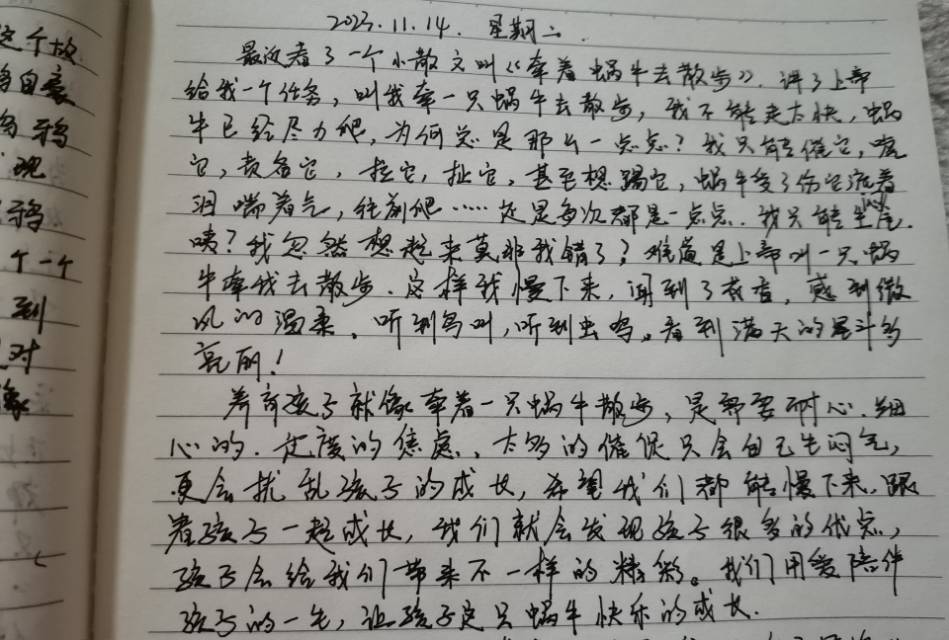 这个故
自豪
鸦
现
鸦
个一个
到
对
像
2023.11.14. 星期二.
最近看了一个小散文叫《牵着蜗牛去散步》. 讲了上帝
给我一个任务, 叫我牵一只蜗牛去散步, 我不能走太快, 蜗
牛已经尽力爬, 为何总是那么一点点? 我只能催它, 唬
它, 责备它, 拉它, 扯它, 甚至想踢它, 蜗牛受了伤它流着
泪喘着气, 往前爬……还是每次都是一点点. 我只能生闷气.
咦? 我忽然想起来莫非我错了? 难道是上帝叫一只蜗
牛牵我去散步. 这样我慢下来, 闻到了花香, 感到微
风的温柔. 听到鸟叫, 听到虫鸣. 看到满天的星斗多
亮丽!
养育孩子就像牵着一只蜗牛散步, 是需要耐心. 细
心的. 过度的焦虑、太多的催促只会自己生闷气,
更会扰乱孩子的成长, 希望我们都能慢下来, 跟
着孩子一起成长, 我们就会发现孩子很多的优点,
孩子会给我们带来不一样的精彩。我们用爱陪伴
孩子的一生, 让孩子这只蜗牛快乐的成长.